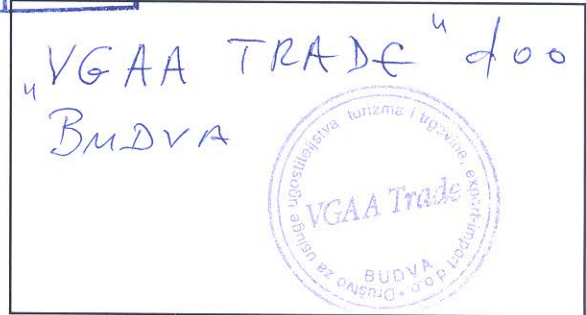 „VGAA TRADE" doo
BUDVA
Društvo za usluge ugostiteljstva turizma i trgovine, export-import d.o.o.
VGAA Trade
BUDVA